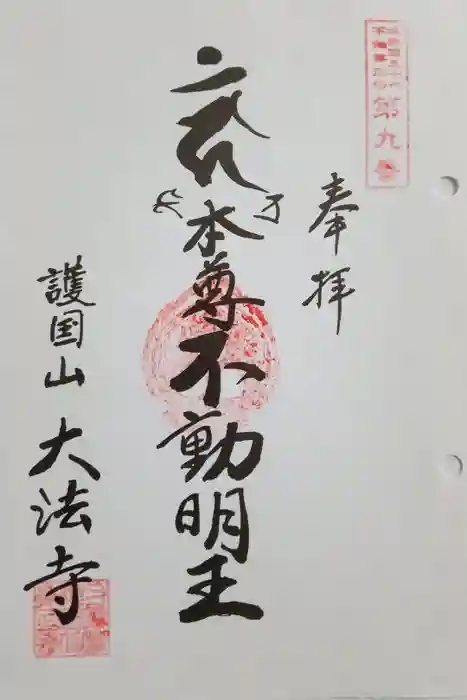 第九番
奉拝
本尊不動明王
護国山大法寺